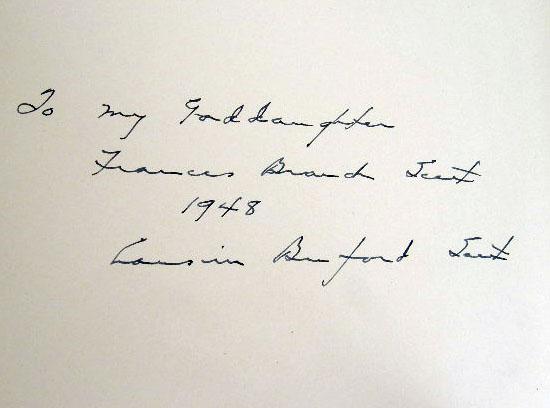 To my Goddaughter
Frances Branch Scott
1948
Cousin Buford Scott